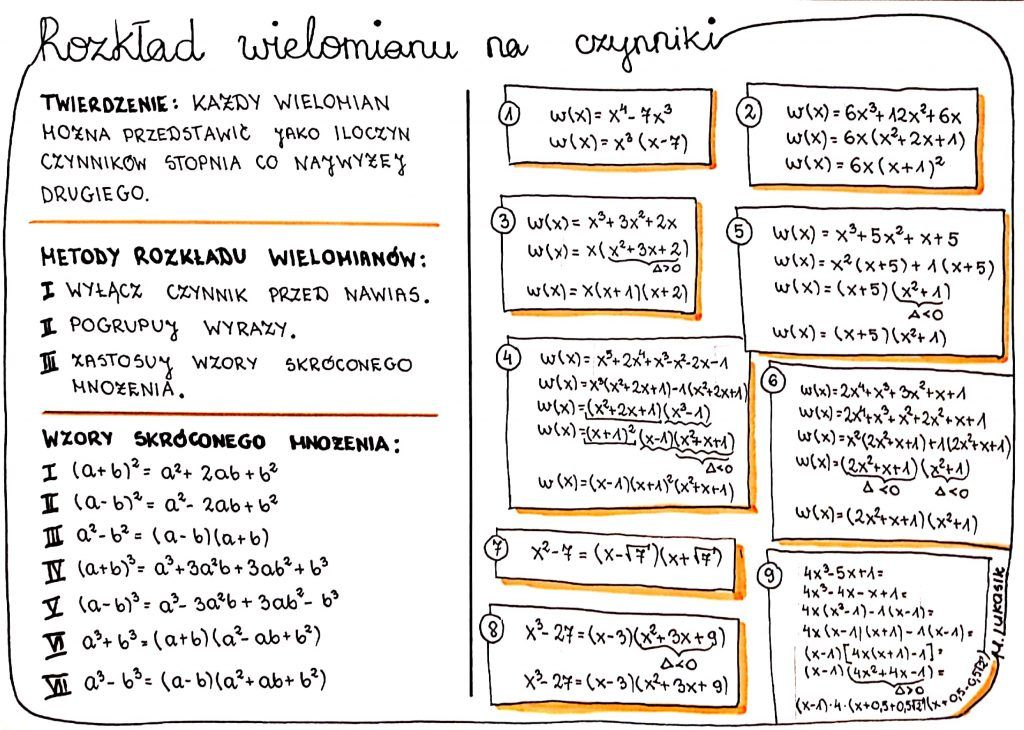 Rozkład wielomianu na czynniki
TWIERDZENIE: KAŻDY WIELOMIAN
MOŻNA PRZEDSTAWIĆ JAKO ILOCZYN
CZYNNIKÓW STOPNIA CO NAJWYŻEJ
DRUGIEGO.
METODY ROZKŁADU WIELOMIANÓW:
I WYŁĄCZ CZYNNIK PRZED NAWIAS.
II POGRUPUJ WYRAZY.
III ZASTOSUJ WZORY SKRÓCONEGO
MNOŻENIA.
WZORY SKRÓCONEGO MNOŻENIA:
I (a+b)² = a² + 2ab + b²
II (a-b)² = a² - 2ab + b²
III a² - b² = (a-b)(a+b)
IV (a+b)³ = a³ + 3a²b + 3ab² + b³
V (a-b)³ = a³ - 3a²b + 3ab² - b³
VI a³ + b³ = (a+b)(a² - ab + b²)
VII a³ - b³ = (a-b)(a² + ab + b²)
1
w(x) = x⁴ - 7x³
w(x) = x³(x-7)
2
w(x) = 6x³ + 12x² + 6x
w(x) = 6x(x² + 2x + 1)
w(x) = 6x(x+1)²
3
w(x) = x³ + 3x² + 2x
w(x) = x(x² + 3x + 2)
Δ>0
w(x) = x(x+1)(x+2)
5
w(x) = x³ + 5x² + x + 5
w(x) = x²(x+5) + 1(x+5)
w(x) = (x+5)(x²+1)
Δ<0
w(x) = (x+5)(x²+1)
4
w(x) = x⁵ + 2x⁴ + x³ - x² - 2x - 1
w(x) = x³(x²+2x+1) - 1(x²+2x+1)
w(x) = (x²+2x+1)(x³-1)
w(x) = (x+1)²(x-1)(x²+x+1)
Δ<0
w(x) = (x-1)(x+1)²(x²+x+1)
6
w(x) = 2x⁴ + x³ + 3x² + x + 1
w(x) = 2x⁴ + x³ + x² + 2x² + x + 1
w(x) = x²(2x²+x+1) + 1(2x²+x+1)
w(x) = (2x²+x+1)(x²+1)
Δ<0 Δ<0
w(x) = (2x²+x+1)(x²+1)
7
x² - 7 = (x-√7)(x+√7)
8
x³ - 27 = (x-3)(x²+3x+9)
Δ<0
x³ - 27 = (x-3)(x²+3x+9)
9
4x³ - 5x + 1 =
4x³ - 4x - x + 1 =
4x(x³-1) - 1(x-1) =
4x(x-1)(x+1) - 1(x-1) =
(x-1)[4x(x+1)-1] =
(x-1)(4x²+4x-1) =
Δ>0
(x-1)·4·(x+0,5+0,5√2)(x+0,5-0,5√2)
M. ŁUKASIK